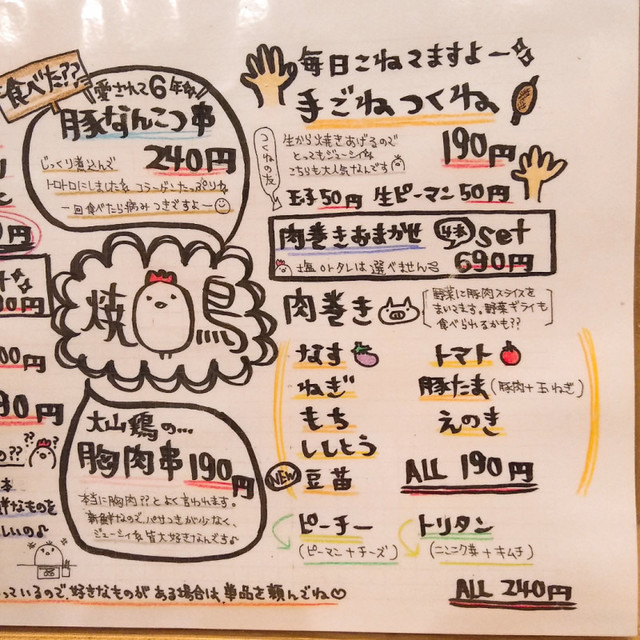 食べた??
愛されて6年余り
豚なんこつ串
240円
じっくり煮込んで
トロトロにしました コラーゲンたっぷりね
一回食べたら病みつきですよー
毎日こねてますよー
手ごねつくね
190円
つくねの友
生から焼きあげるので
とってもジューシィね
こちらも大人気なんです
玉子50円 生ピーマン50円
肉巻きおまかせ 4本 set
塩 or タレは選べません 690円
焼鳥
肉巻き
野菜に豚肉スライスを
まいてます。野菜ギライも
食べられるかも??
なす トマト
ねぎ 豚たま(豚肉+玉ねぎ)
もち えのき
ししとう
NEW 豆苗
ALL 190円
ピーチー トリタン
(ピーマン+チーズ) (ニンニク芽+キムチ)
ALL 240円
大山鶏の...
胸肉串 190円
本当に胸肉??とよく言われます。
新鮮なのでパサつきが少なく、
ジューシィね 皆大好きなんです♪
円
00円
00円
90円
の??
??
??
本
鮮なものを
しいの♪
っているので、好きなものがある場合は、単品を頼んでね♡